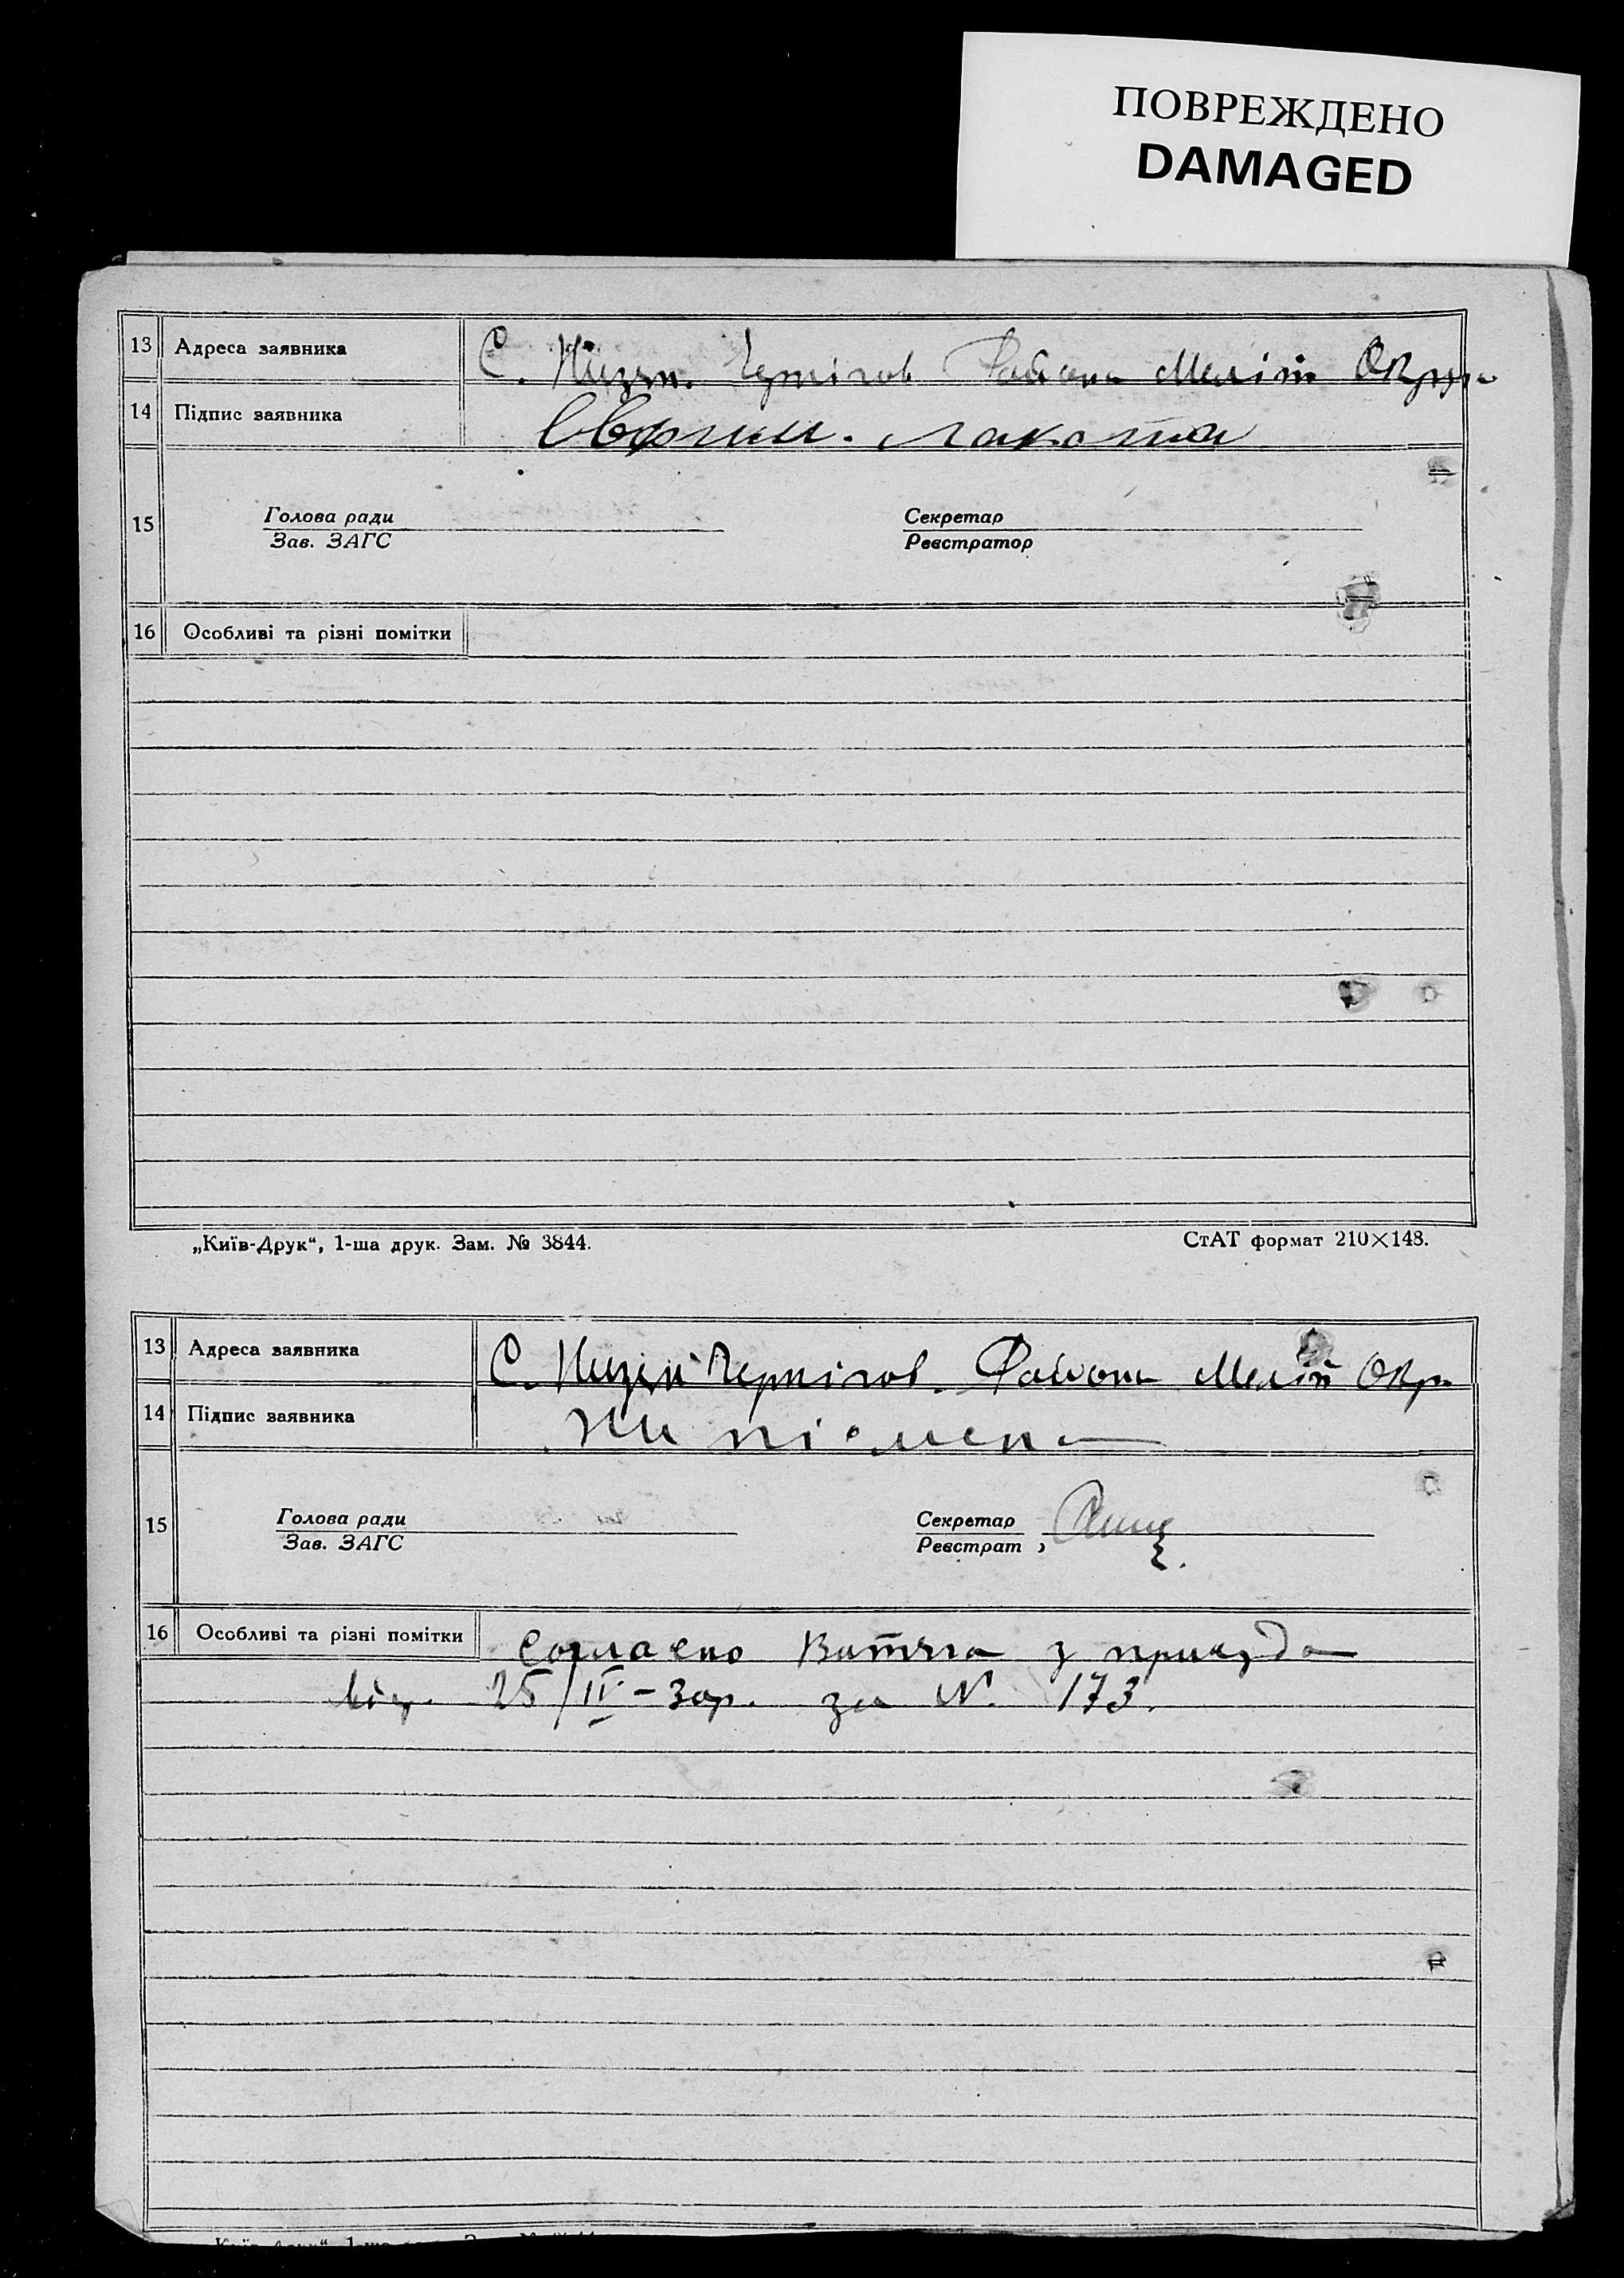 ПОВРЕЖДЕНО
DAMAGED
13 Адреса заявника С. Низян. Чернігов Району Меліт Округи
14 Підпис заявника Лакота
15 Голова ради Секретар
Зав. ЗАГС Реєстратор
16 Особливі та різні помітки
„Київ-Друк“, 1-ша друк. Зам. № 3844. СтАТ формат 210×148.
13 Адреса заявника С. Низян Чернігов. Району Меліт Окр.
14 Підпис заявника Не пісмен
15 Голова ради Секретар
Зав. ЗАГС Реєстрат
16 Особливі та різні помітки согласно Витяга з
від. 25/IV-30р. за N. 173.